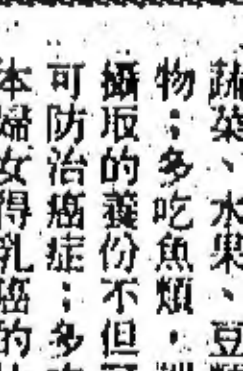 蔬菜、水果、豆
物；多吃魚類，
攝取的養份不但
可防治癌症；多
本婦女得乳癌的